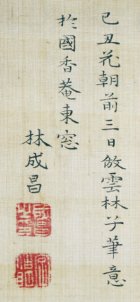 己丑花朝前三日倣雲林子筆意
於國香菴東窓
林成昌